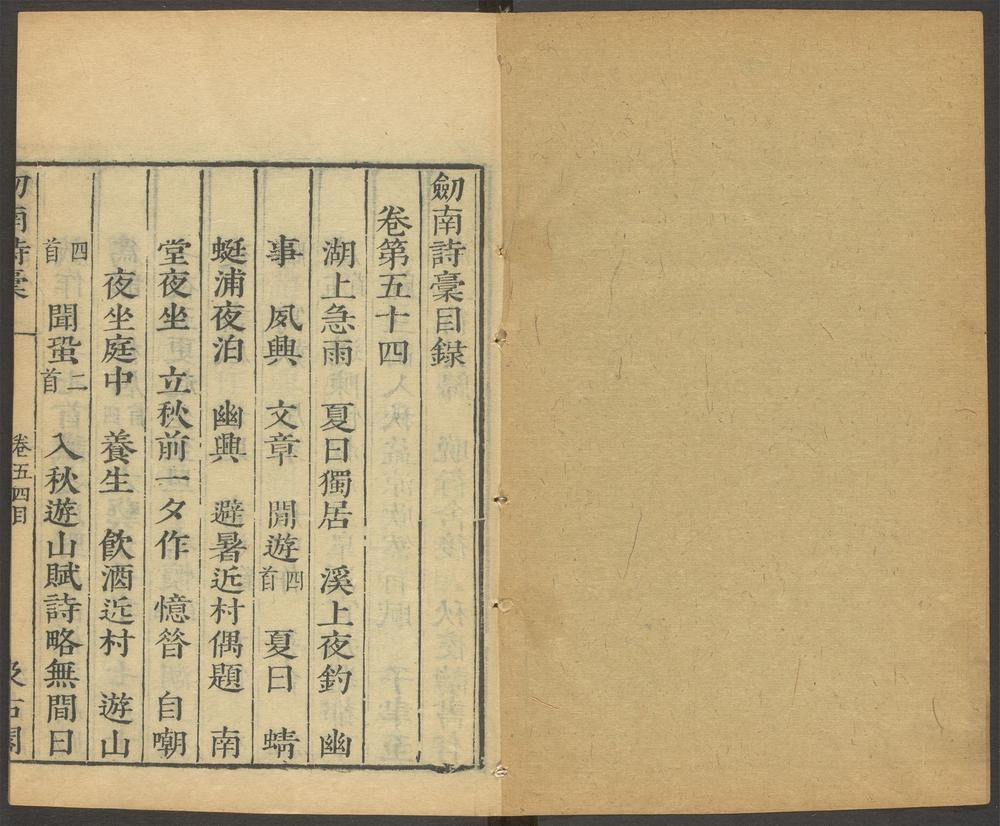 劒南詩稾目錄
卷第五十四
湖上急雨　夏日獨居　溪上夜釣　幽
事　夙興　文章　閒遊四首　夏日　蜻
蜓浦夜泊　幽興　避暑近村偶題　南
堂夜坐　立秋前一夕作　憶昝　自嘲
夜坐庭中　養生　飲酒近村　遊山
四首　聞蛩二首　入秋遊山賦詩略無間日
劒南詩稾　卷五四目　汲古閣